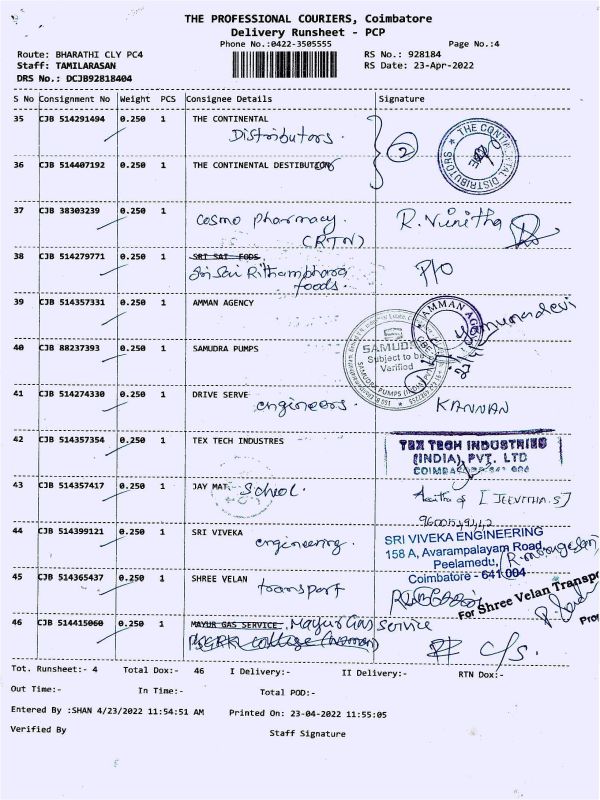 THE PROFESSIONAL COURIERS, Coimbatore
Delivery Runsheet - PCP
Phone No.:0422-3505555
Page No.:4
Route: BHARATHI CLY PC4
RS No.: 928184
Staff: TAMILARASAN
RS Date: 23-Apr-2022
DRS No.: DCJB92818404
S No Consignment No Weight PCS Consignee Details Signature
35 CJB 514291494 0.250 1 THE CONTINENTAL
Distributors.
2
THE CONTINENTAL DISTRIBUTORS
36 CJB 514407192 0.250 1 THE CONTINENTAL DESTIBUTION
37 CJB 38303239 0.250 1
Cosmo pharmacy. R. Vinitha
(RTN)
38 CJB 514279771 0.250 1 SRI SAI FODS
Sri Sai Rithambhara P/O
foods.
39 CJB 514357331 0.250 1 AMMAN AGENCY
AMMAN
Yamunadevi
40 CJB 88237393 0.250 1 SAMUDRA PUMPS
SAMUDRA
Subject to be
Verified
SAMUDRA PUMPS (INDIA)
41 CJB 514274330 0.250 1 DRIVE SERVE
engineers. KANNAN
42 CJB 514357354 0.250 1 TEX TECH INDUSTRES
TEX TECH INDUSTRIES
(INDIA) PVT. LTD
43 CJB 514357417 0.250 1 JAY MAT.
School. [JEEVITHA.S]
44 CJB 514399121 0.250 1 SRI VIVEKA
engineering.
SRI VIVEKA ENGINEERING
158 A, Avarampalayam Road,
Peelamedu,
Coimbatore - 641 004
45 CJB 514365437 0.250 1 SHREE VELAN
transport
For Shree Velan Transpo
46 CJB 514415060 0.250 1 MAYUR GAS SERVICE. Mayur Gas Service
C/s.
Tot. Runsheet:- 4 Total Dox:- 46 I Delivery:- II Delivery:- RTN Dox:-
Out Time:- In Time:- Total POD:-
Entered By :SHAN 4/23/2022 11:54:51 AM Printed On: 23-04-2022 11:55:05
Verified By Staff Signature